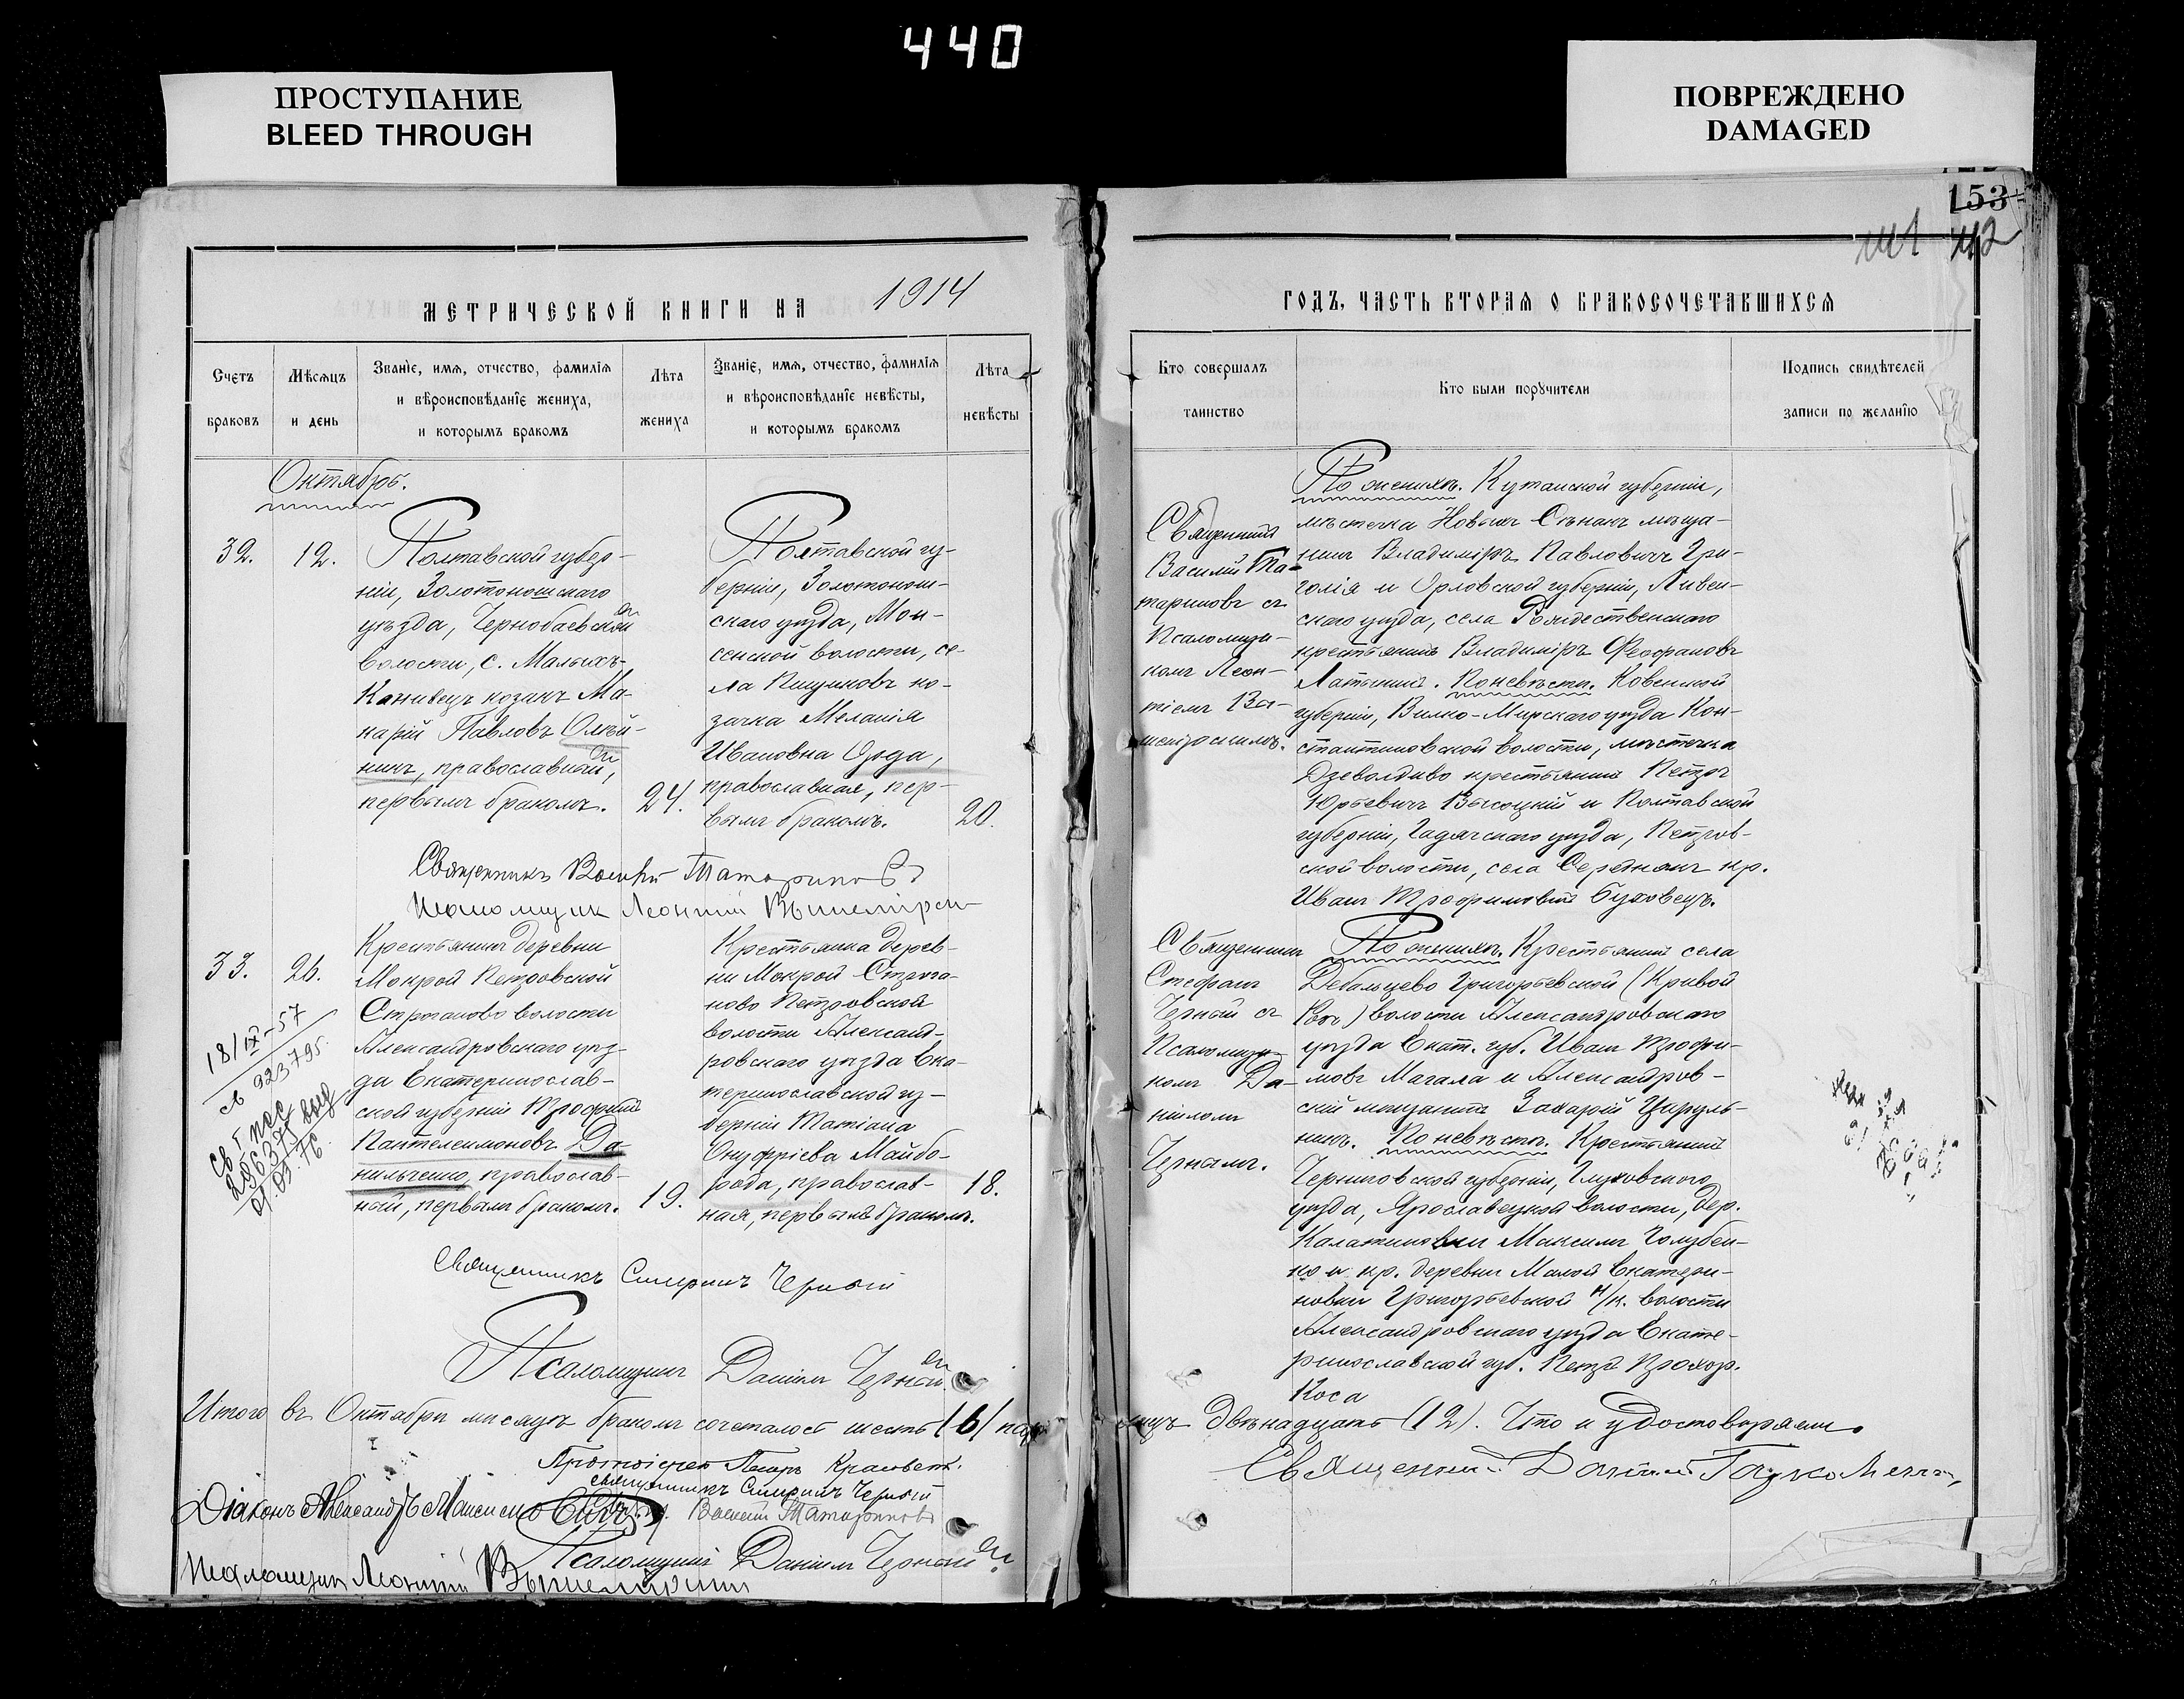 440
ПРОСТУПАНИЕ
BLEED THROUGH
ПОВРЕЖДЕНО
DAMAGED
153
МЕТРИЧЕСКОЙ КНИГИ НА 1914
ГОДЪ, ЧАСТЬ ВТОРАЯ О БРАКОСОЧЕТАВШИХСЯ
Счетъ браковъ
Мѣсяцъ и день
Званіе, имя, отчество, фамилія
и вѣроисповѣданіе жениха,
и которымъ бракомъ
Лѣта жениха
Званіе, имя, отчество, фамилія
и вѣроисповѣданіе невѣсты,
и которымъ бракомъ
Лѣта невѣсты
Кто совершалъ
таинство
Кто были поручители
Подпись свидѣтелей
записи по желанію
Октябрь.
32.
12.
Полтавской губер-
ніи, Золотоношскаго
уѣзда, Чернобаевской
волости, с. Малыхъ-
Канивецъ козакъ Ма-
карій Павловъ Олѣй-
никъ, православный,
первымъ бракомъ.
24.
Полтавской гу-
берніи, Золотонош-
скаго уѣзда, Мои-
сенской волости, се-
ла Пищиковъ ко-
зачка Меланія
Ивановна
православная, пер-
вымъ бракомъ.
20.
Священникъ Василій Татариновъ
Псаломщик Леонтій
Священникъ
Василій Та-
тариновъ съ
Псаломщи-
комъ Леон-
тіемъ
По женихѣ. Кутаиской губерніи,
мѣстечка Новыхъ Сѣнакъ мѣща-
нинъ Владиміръ Павловичъ Гри-
голія и Орловской губерніи, Ливен-
скаго уѣзда, села Рождественскаго
крестьянинъ Владиміръ Феофановъ
Латынинъ. По невѣстѣ. Ковенской
губерніи, Вилко-Мирскаго уѣзда Кон-
стантиновской волости, мѣстечка
крестьянинъ Петръ
Юрьевичъ Высоцкій и Полтавской
губерніи, Гадячскаго уѣзда, Петров-
ской волости, села кр.
Иванъ Трофимовичъ Буховецъ.
33.
26.
Крестьянинъ деревни
Мокрой Петровской
Строганово волости
Александровскаго уѣз-
да Екатеринослав-
ской губерніи Трофимъ
Пантелеимоновъ Да-
нильченко, православ-
ный, первымъ бракомъ.
19.
Крестьянка дерев-
ни Мокрой Строга-
ново Петровской
волости Александ-
ровскаго уѣзда Ека-
теринославской гу-
берніи Татіана
Онуфріева Майбо-
рода, православ-
ная, первымъ бракомъ.
18.
18/IX-57
св 923795.
Священникъ Стефанъ Черный
Псаломщикъ Даніилъ Черный
Священникъ
Стефанъ
Черный съ
Псаломщи-
комъ Да-
ніиломъ
Чернымъ.
По женихѣ. Крестьянинъ села
Дебальцево Григорьевской (Кривой
) волости Александровскаго
уѣзда Екат. губ. Иванъ Трофи-
мовъ Магала и Александров-
скій мѣщанинъ Захарій Царуль-
никъ. По невѣстѣ. Крестьянинъ
Черниговской губерніи, Глуховскаго
уѣзда, Ярославецкой волости, дер.
Максимъ Голубен-
ко и кр. деревни Малой Екатери-
новки Григорьевской н/к. волости
Александровскаго уѣзда Екате-
ринославской губ. Петръ Прохор.
Коса
Итого въ Октябрѣ мѣсяцѣ бракомъ сочеталось шесть (6) паръ
лицъ двѣнадцать (12). Что и удостовѣряемъ.
Протоіерей Петръ
священникъ Стефанъ Черный
Діаконъ Александръ
Василій Татариновъ
Псаломщикъ Даніилъ Черный
Псаломщик Леонтій
Священникъ